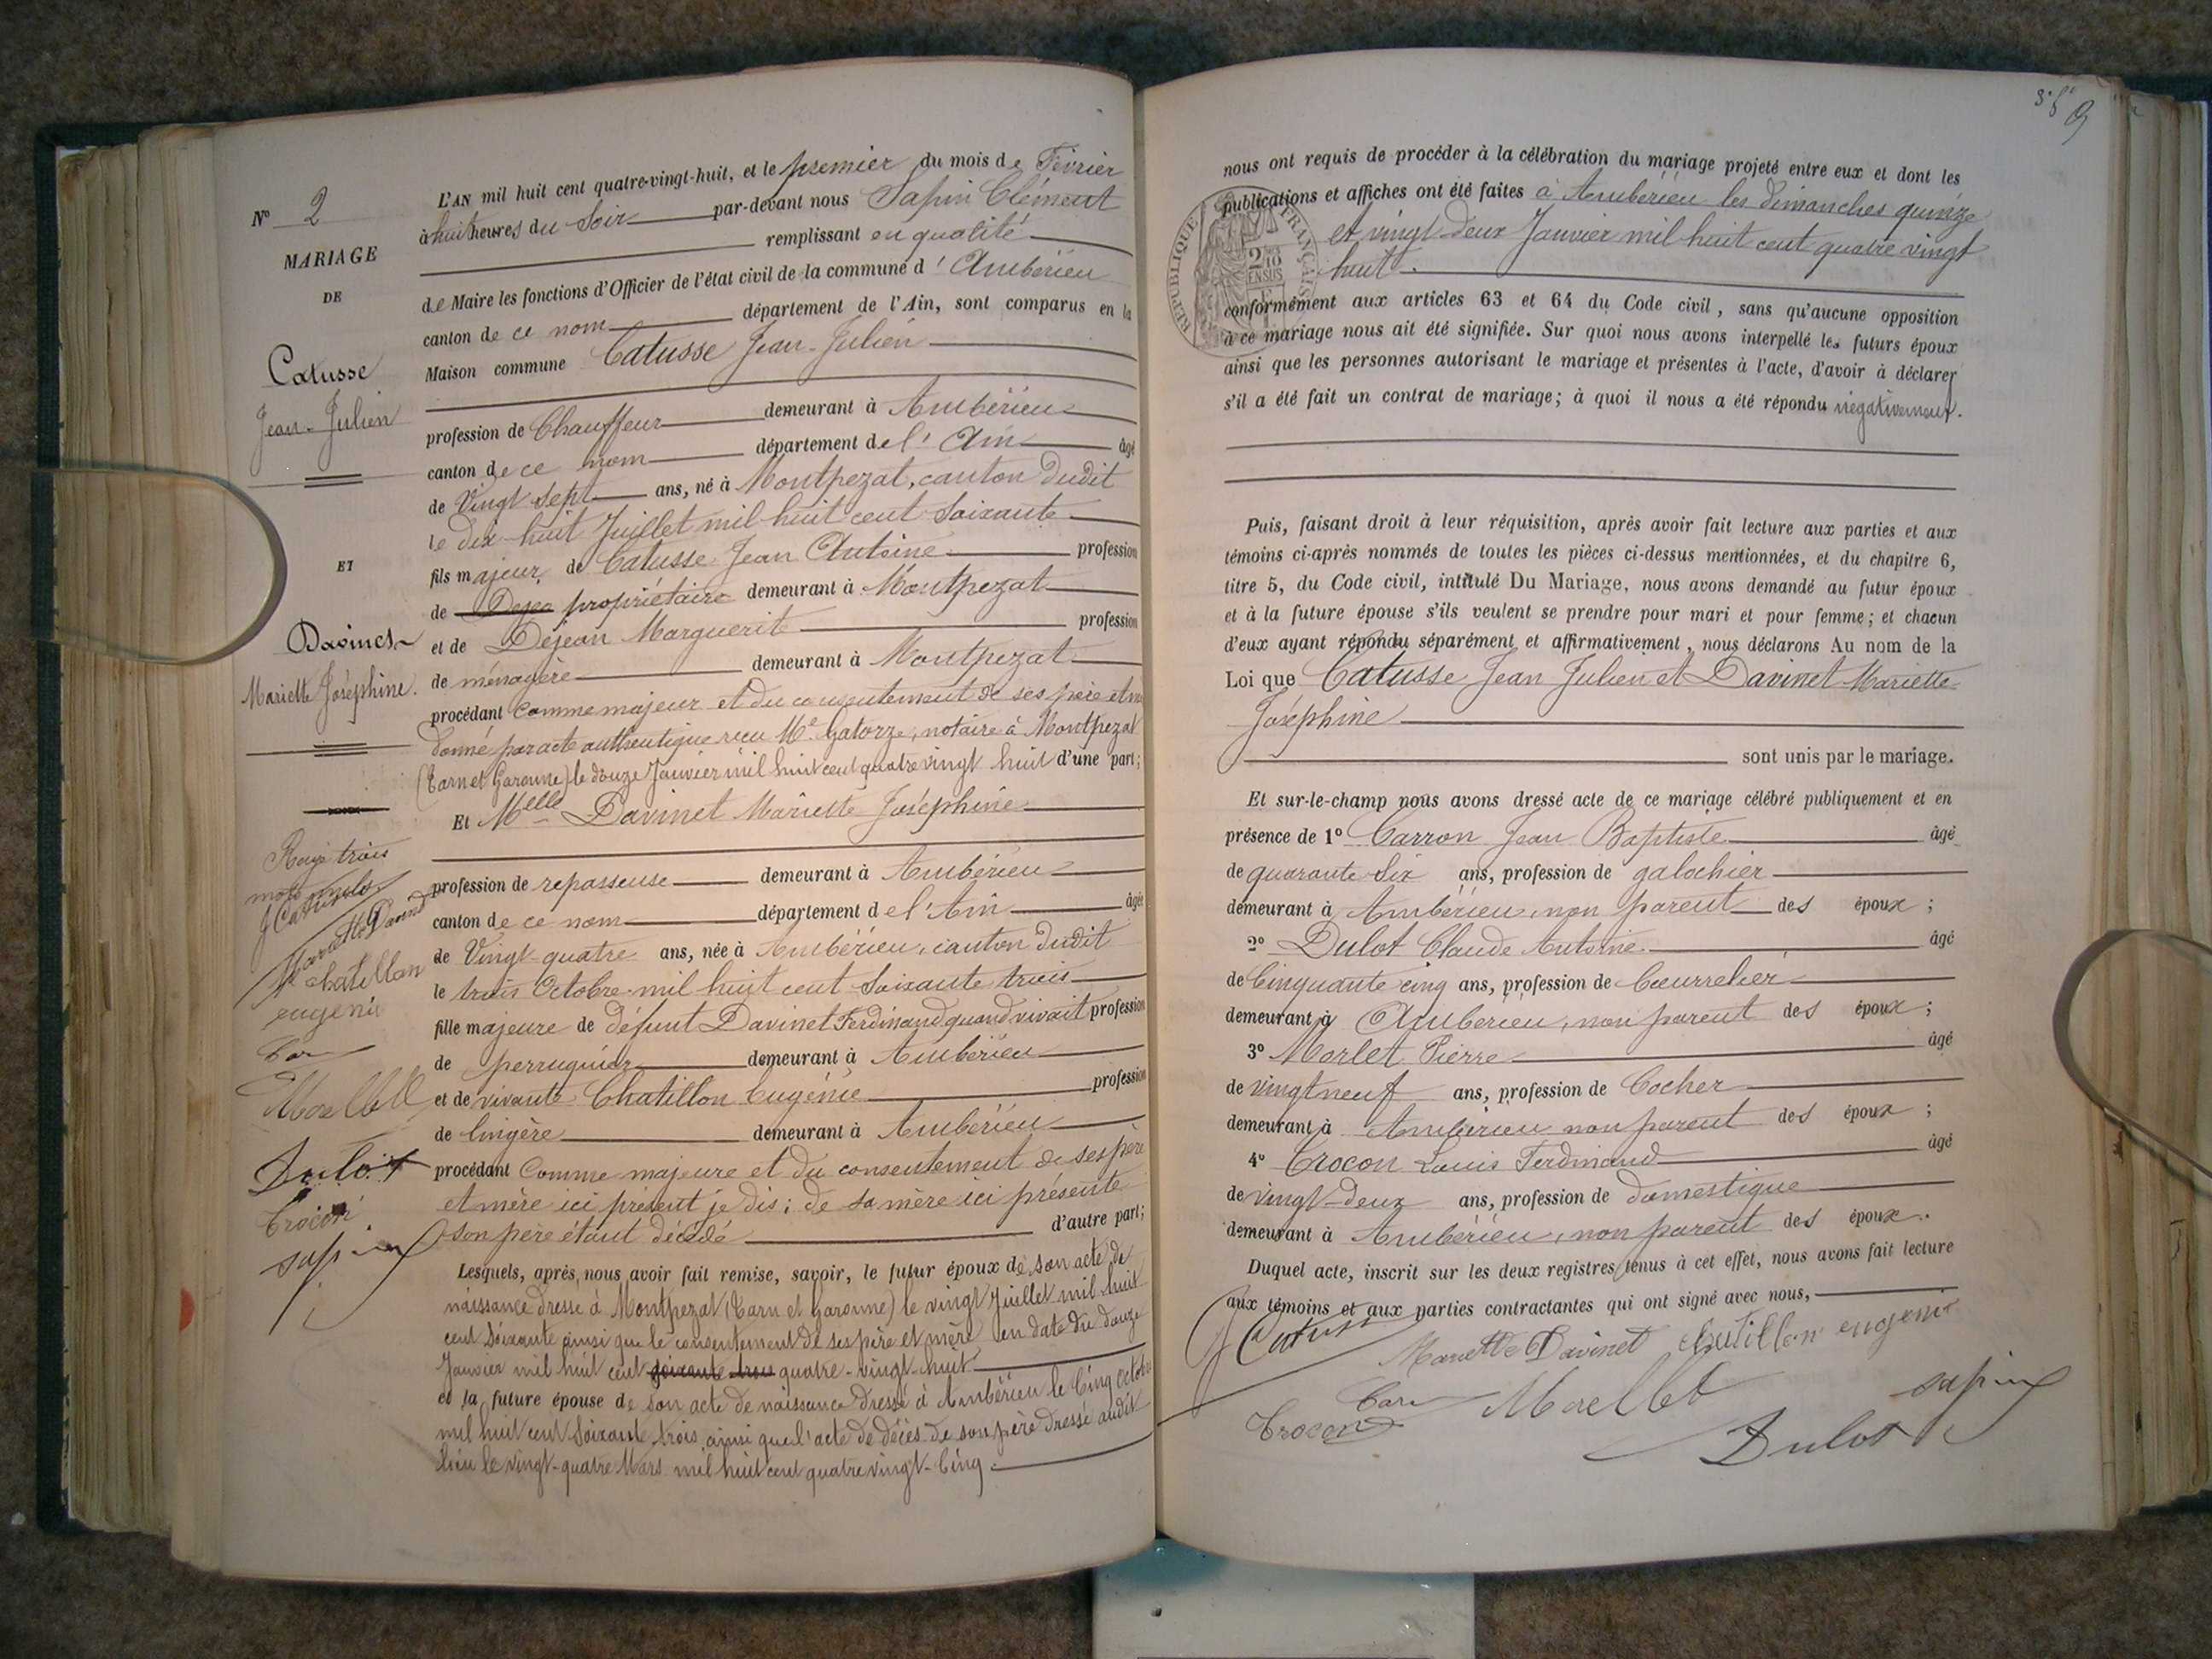 N° 2
MARIAGE
DE
Catusse
Jean-Julien
ET
Davinet
Mariette Joséphine.
Rayé trois
mots nuls
J Catusse
Mariette Davinet
chatillon
eugenie
Car
Morellet
Dulot
Crocon
sapin
L'AN mil huit cent quatre-vingt-huit, et le premier du mois de Février
à huit heures du Soir par-devant nous Sapin Clément
remplissant en qualité
de Maire les fonctions d'Officier de l'état civil de la commune d'Ambérieu
canton de ce nom département de l'Ain, sont comparus en la
Maison commune Catusse Jean-Julien
profession de Chauffeur demeurant à Ambérieu
canton de ce nom département de l'Ain âgé
de Vingt sept ans, né à Montpezat, canton dudit
le dix-huit Juillet mil huit cent soixante
fils majeur de Catusse Jean Antoine profession
de Dejea propriétaire demeurant à Montpezat
et de Déjean Marguerit profession
de ménagère demeurant à Montpezat
procédant comme majeur et du consentement de ses père et
donné par acte authentique reçu Me Gatorze, notaire à Montpezat
(Tarn et Garonne) le douze Janvier mil huit cent quatre vingt huit d'une part;
Et Melle Davinet Mariette Joséphine
profession de repasseuse demeurant à Ambérieu
canton de ce nom département de l'Ain âgée
de Vingt-quatre ans, née à Ambérieu, canton dudit
le trois Octobre mil huit cent soixante trois
fille majeure de défunt Davinet Ferdinand quand vivait profession
de perruquier demeurant à Ambérieu
et de vivante Chatillon Eugénie profession
de lingère demeurant à Ambérieu
procédant comme majeure et du consentement de ses père
et mère ici présent je dis: de sa mère ici présente
son père étant décédé d'autre part;
Lesquels, après nous avoir fait remise, savoir, le futur époux de son acte de
naissance dressé à Montpezat (Tarn et Garonne) le vingt Juillet mil huit
cent soixante ainsi que le consentement de ses père et mère en date du douze
Janvier mil huit cent soixante trois quatre-vingt-huit
et la future épouse de son acte de naissance dressé à Ambérieu le cinq octobre
mil huit cent soixante trois, ainsi que l'acte de décès de son père dressé audit
lieu le vingt-quatre Mars mil huit cent quatre vingt-cinq.
nous ont requis de procéder à la célébration du mariage projeté entre eux et dont les
publications et affiches ont été faites à Ambérieu les dimanches quinze
et vingt-deux Janvier mil huit cent quatre vingt
huit.
RÉPUBLIQUE FRANÇAISE
2/10
EN SUS
conformément aux articles 63 et 64 du Code civil, sans qu'aucune opposition
à ce mariage nous ait été signifiée. Sur quoi nous avons interpellé les futurs époux
ainsi que les personnes autorisant le mariage et présentes à l'acte, d'avoir à déclarer
s'il a été fait un contrat de mariage; à quoi il nous a été répondu négativement.
Puis, faisant droit à leur réquisition, après avoir fait lecture aux parties et aux
témoins ci-après nommés de toutes les pièces ci-dessus mentionnées, et du chapitre 6,
titre 5, du Code civil, intitulé Du Mariage, nous avons demandé au futur époux
et à la future épouse s'ils veulent se prendre pour mari et pour femme; et chacun
d'eux ayant répondu séparément et affirmativement, nous déclarons Au nom de la
Loi que Catusse Jean Julien et Davinet Mariette
Joséphine
sont unis par le mariage.
Et sur-le-champ nous avons dressé acte de ce mariage célébré publiquement et en
présence de 1° Carron Jean Baptiste âgé
de quarante six ans, profession de galochier
demeurant à Ambérieu, non parent des époux;
2° Dulot Claude Antoine âgé
de Cinquante cinq ans, profession de Cœurrelier
demeurant à Ambérieu, non parent des époux;
3° Morlet Pierre âgé
de vingt neuf ans, profession de Cocher
demeurant à Ambérieu non parent des époux;
4° Crocon Louis Ferdinand âgé
de vingt-deux ans, profession de domestique
demeurant à Ambérieu, non parent des époux.
Duquel acte, inscrit sur les deux registres tenus à cet effet, nous avons fait lecture
aux témoins et aux parties contractantes qui ont signé avec nous,
J Catusse
Mariette Davinet chatillon eugenie
Car Morellet sapin
Crocon Dulot